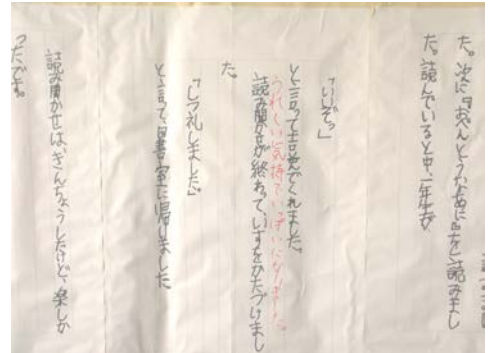 た。次に『おべんとうなあに』を読みまし
た。読んでいると中、一年生が、
「いいぞっ」
と言って喜んでくれました。
うれしい気持でいっぱいになりました。
読み聞かせが終わって、いすをかたづけまし
た。
「しつ礼しました。」
と言って、図書室に帰りました。
読み聞かせは、きんちょうしたけど、楽しか
ったです。